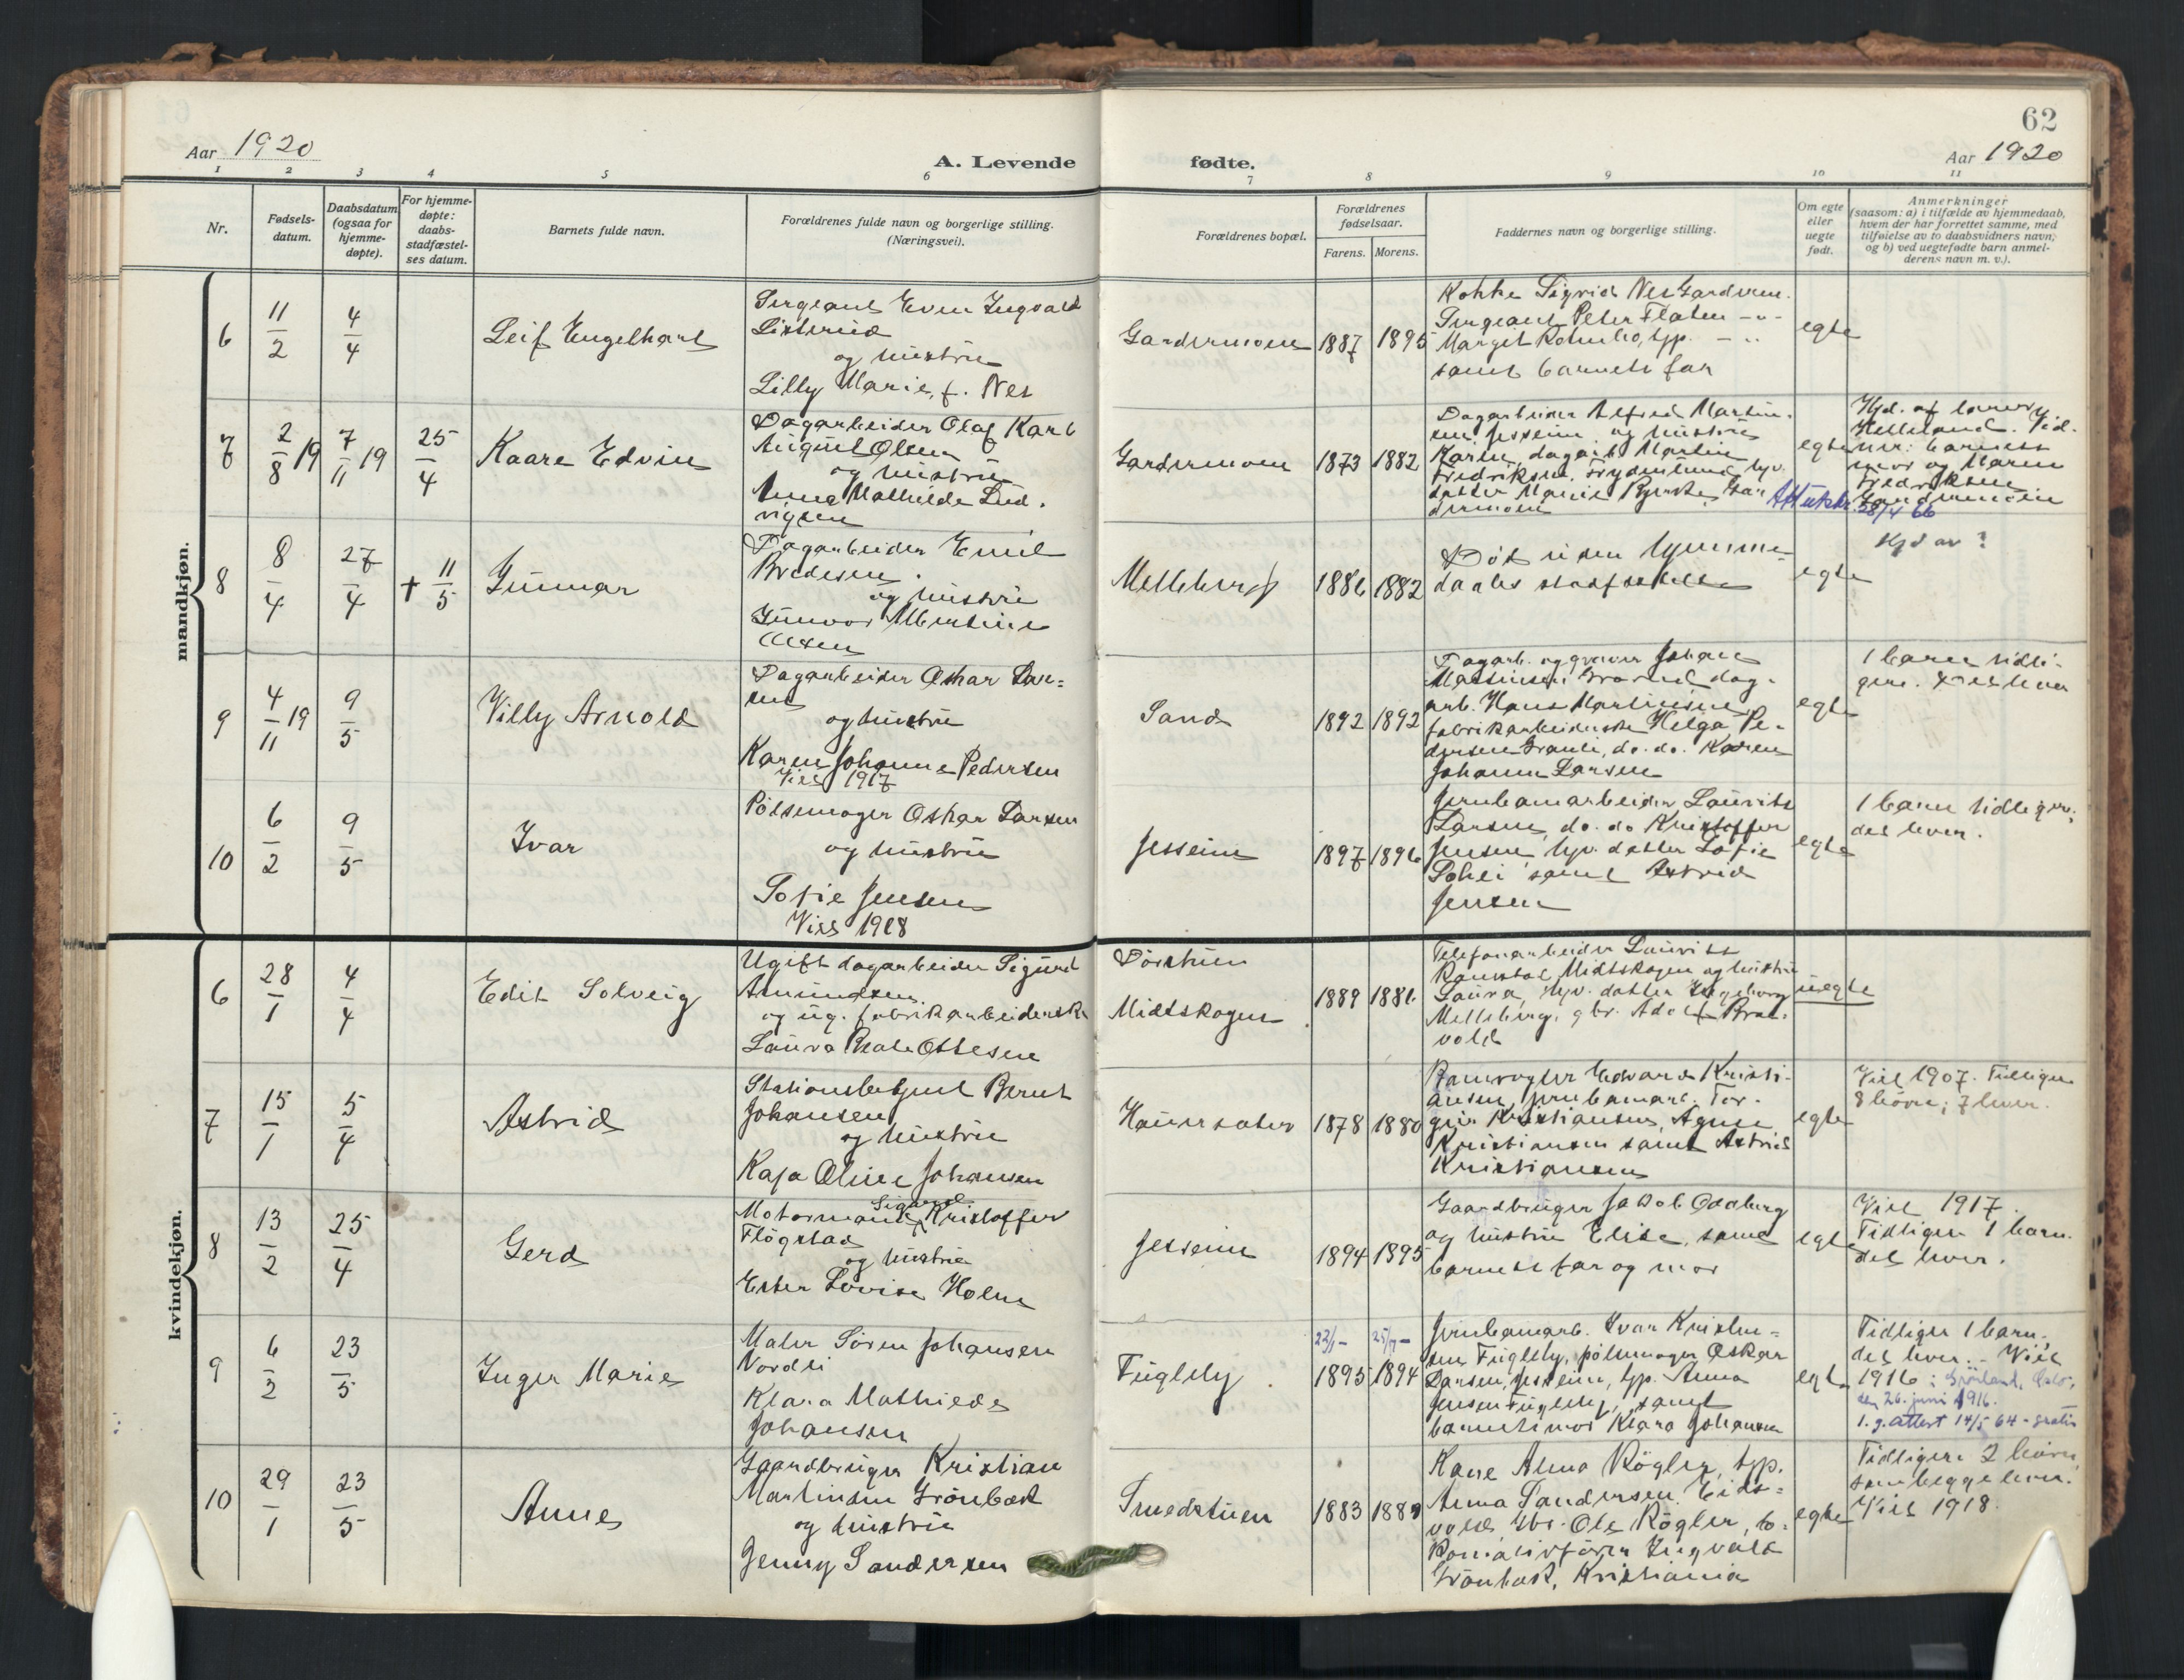 62
Aar 1920
A. Levende fødte.
Aar 1920
1 2 3 4 5 6 7 8 9 10 11
Nr.
Fødsels-
datum.
Daabsdatum
(ogsaa for
hjemme-
døpte).
For hjemme-
døpte:
daabs-
stadfæstel-
ses datum.
Barnets fulde navn.
Forældrenes fulde navn og borgerlige stilling.
(Næringsvei).
Forældrenes bopæl.
Forældrenes
fødselsaar.
Farens. Morens.
Faddernes navn og borgerlige stilling.
Om egte
eller
uegte
født.
Anmerkninger
(saasom: a) i tilfælde av hjemmedaab,
hvem der har forrettet samme, med
tilføielse av to daabsvidners navn;
og b) ved uegtefødte barn anmel-
derens navn m. v.).
mandkjøn.
6
11/2
4/4
Leif Engelhart
Sergeant Even Ingvald
og hustru
Lilly Marie, f. Nes
Gardermoen
1887 1895
Kokke Sigrid Nes Gardermoen.
Sergeant Peter Flaten -"-
Margit
samt barnets far
egte
7
2/8 19
7/11 19
25/4
Kaare Edvin
Dagarbeider Olaf Karl
August Olsen
og hustru
Anna Mathilde Lud-
vigsen
Gardermoen
1873 1882
Dagarbeider Alfred Martin-
sen Jesseim og hustru
Karen, dagarb. Martin
Fredriksen, Frydenlund, hjv.
datter Marie Gar-
dermoen
egte
Hjd. af lærer
Helleland. Vid-
ner: barnets
mor og Maren
Fredriksen
Gardermoen
Attutskr. 28/4 66
8
8/4
27/4
+ 11/5
Gunnar
Dagarbeider Emil
Bredesen
og hustru
Gunvor Albertine
Olsen
Melleberg
1886 1882
Død uten hjemme-
daabs stadfestelse
egte
Hjd av ?
9
4/11 19
9/5
Villy Arnold
Dagarbeider Oskar Lar=
sen
og hustru
Karen Johanne Pedersen
Viet 1917
Sand
1892 1892
Dagarb. og graver Johan
dag-
arb. Hans Martinsen,
fabrikarbeiderske Helga Pe-
dersen do. do. Karen
Johanne Larsen
egte
1 barn tidli-
gere. Det lever
10
6/2
9/5
Ivar
Pølsemager Oskar Larsen
og hustru
Sofie Jensen
Viet 1918
Jesseim
1897 1896
Jernbanearbeider Laurits
Larsen, do. do Kristoffer
Jensen, hjv. datter Sofie
samt Astrid
Jensen
egte
1 barn tidligere,
det lever.
kvindekjøn.
6
28/1
4/4
Edit Solveig
Ugift dagarbeider Sigurd
Amundsen
og ug. fabrikarbeiderske
Laura Beate Ottesen
Midtskogen
1889 1886
Telefonarbeider Laurits
Ramstad, Midtskogen og hustru
Laura, hjv. datter Ingeborg
Melleberg, gbr. Adolf
uegte
7
15/1
5/4
Astrid
Stationsbetjent Bernt
Johansen
og hustru
Kaja Oline Johansen
Hauersæter
1878 1880
Banevogter Edvard Kristi-
ansen, jernbanearb. Tor-
geir Kristiansen, Agnes
Kristiansen samt Astrid
Kristiansen
egte
Viet 1907. Tidligere
8 børn; 7 lever.
8
13/2
25/4
Gerd
Motormand Sigurd Kristoffer
Fløgstad
og hustru
Ester Lovise Holm
Jesseim
1894 1895
Gaardbruger Jakob Odberg
og hustru Elise, samt
barnets far og mor
egte
Viet 1917.
Tidligere 1 barn.
det lever.
9
6/2
23/5
Inger Marie
Maler Søren Johansen
Nordli
Klara Mathilde
Johansen
Fuglely
1895 1894
Jernbanearb. Ivar Kristen=
sen Fuglely, pølsemager Oskar
Larsen, Jesseim, tjp. Anna
Jensen Fuglely, samt
barnets mor Klara Johansen
egte
Tidligere 1 barn.
det lever. - Viet
1916: Grønland, Oslo,
den 26. juni 1916.
1. g. attest 14/5 64 - gratis
10
29/1
23/5
Anne
Gaardbruger Kristian
Martinsen Grønbæk
og hustru
Jenny Sandersen
Smedstuen
1883 1889
Kone Anna Røgler, tjp.
Anna Sandersen Eids=
vold, gbr. Ole Røgler, lo-
komotivfører Ingvald
Grønbæk, Kristiania
egte
Tidligere 2 børn,
som begge lever.
Viet 1918.